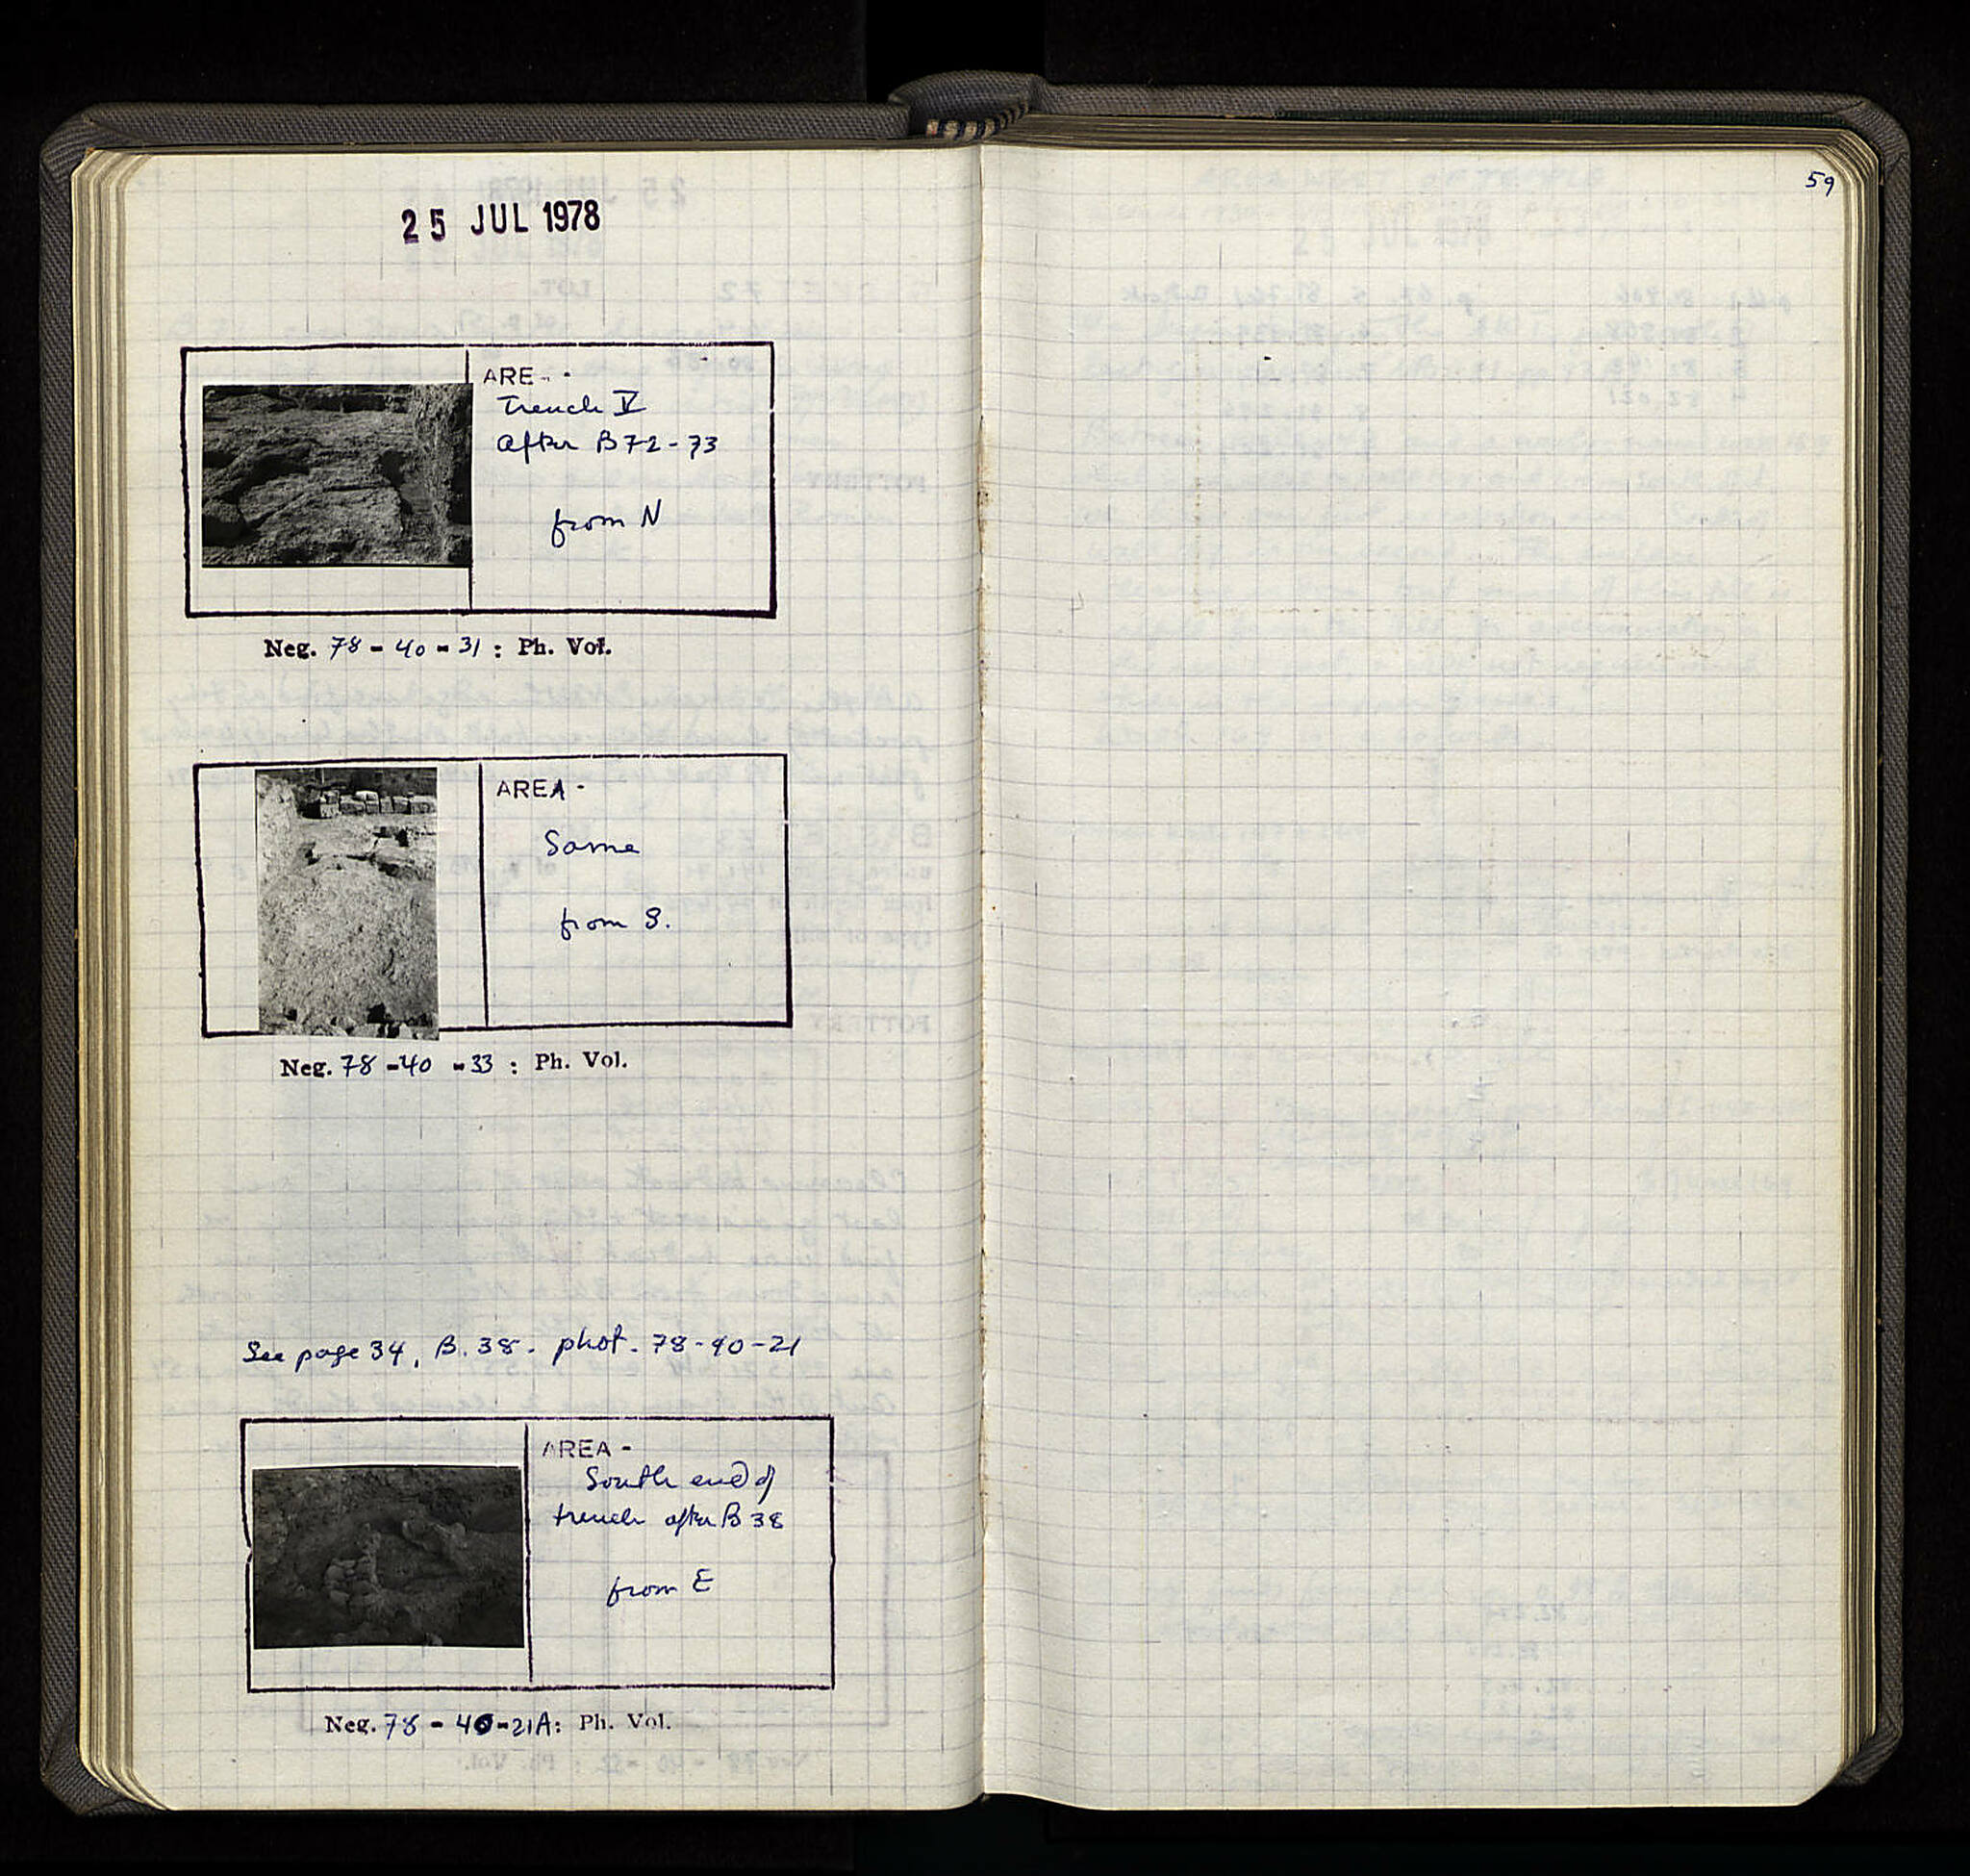 25 JUL 1978
ARE - -
Trench V
after B72-73
from N
Neg. 78-40-31 : Ph. Vol.
AREA -
Same
from S.
Neg. 78-40-33 : Ph. Vol.
See page 34, B. 38. phot. 78-40-21
AREA -
South end of
trench after B 38
from E
Neg. 78-40-21A: Ph. Vol.
59